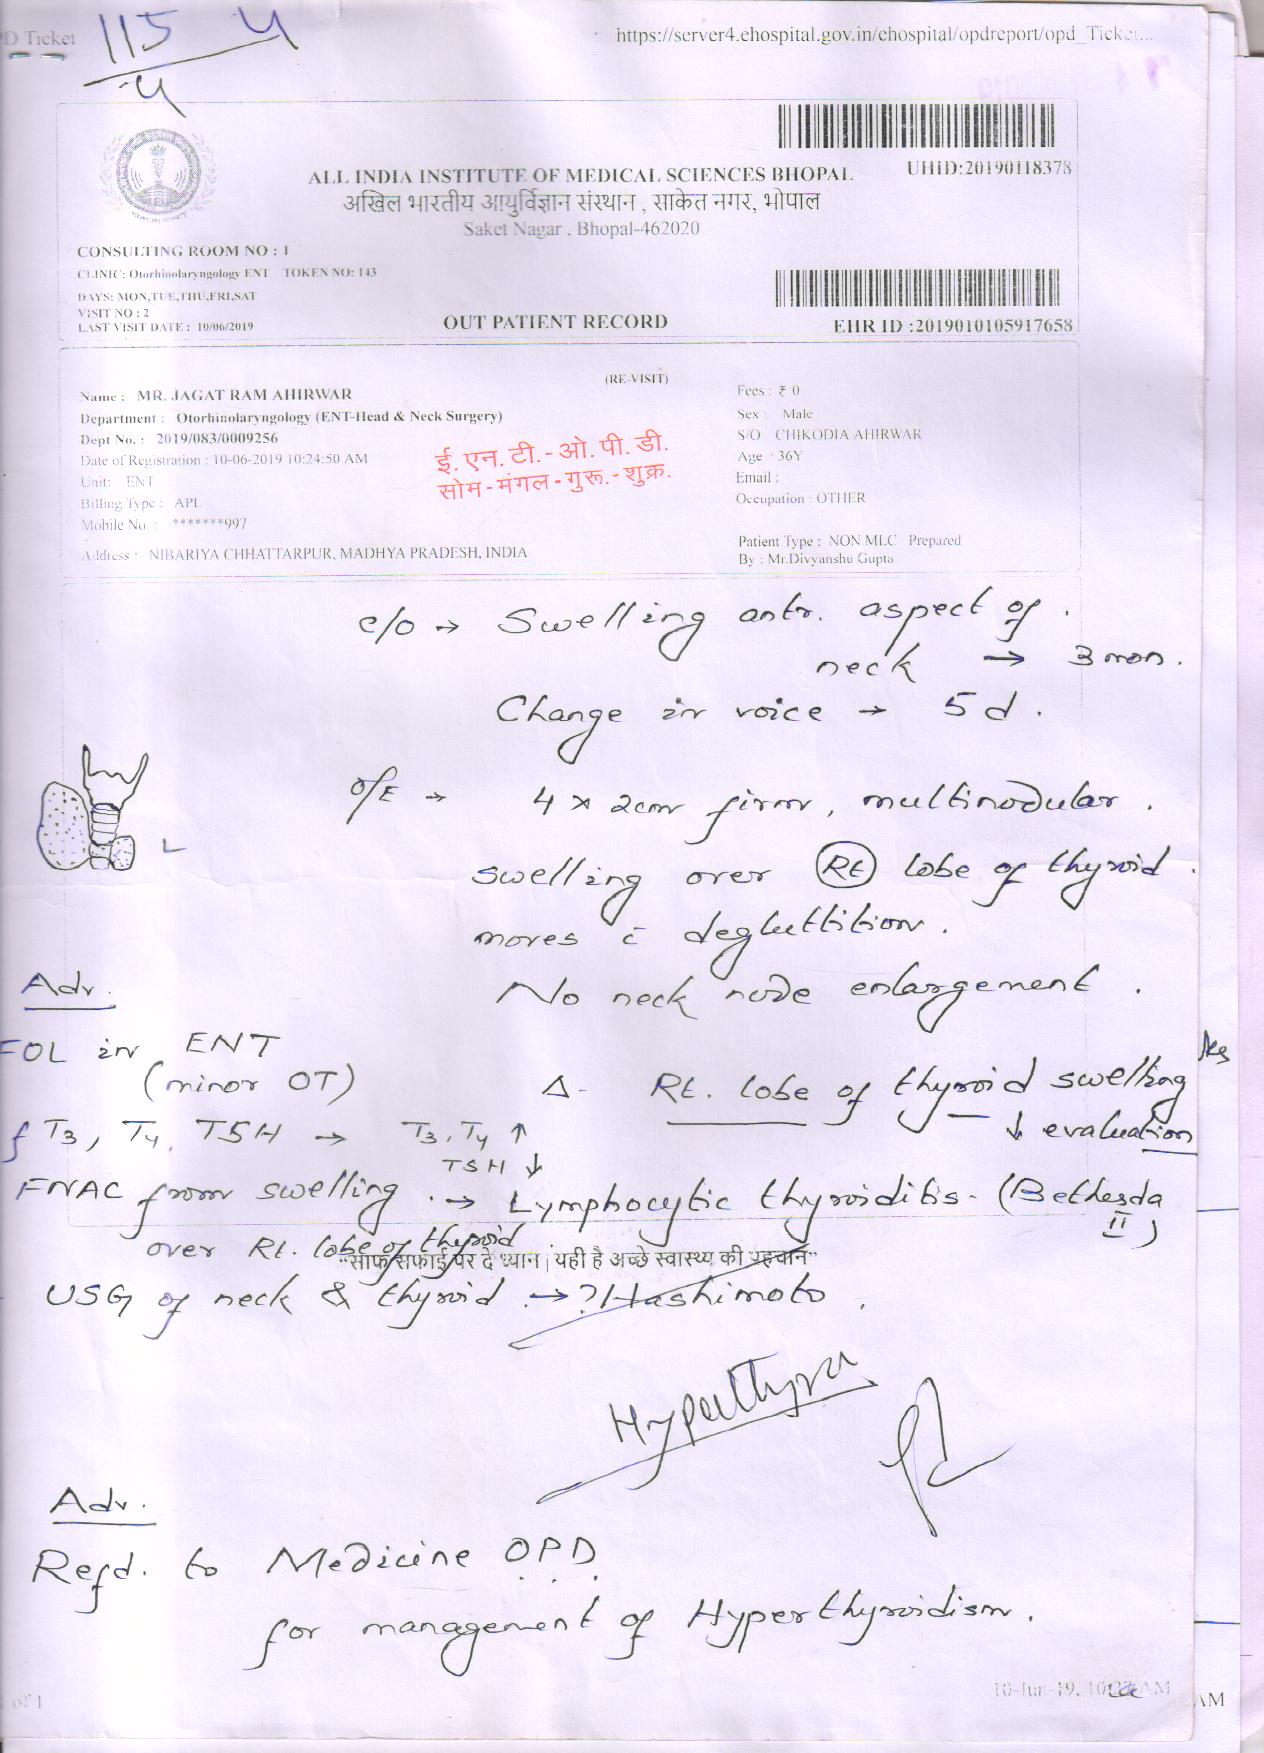 PD Ticket
115 4
4
https://server4.ehospital.gov.in/ehospital/opdreport/opd_Ticket...
ALL INDIA INSTITUTE OF MEDICAL SCIENCES BHOPAL
UHID:20190118378
अखिल भारतीय आयुर्विज्ञान संस्थान , साकेत नगर, भोपाल
Saket Nagar , Bhopal-462020
CONSULTING ROOM NO : 1
CLINIC: Otorhinolaryngology ENT TOKEN NO: 143
DAYS: MON,TUE,THU,FRI,SAT
VISIT NO : 2
LAST VISIT DATE : 10/06/2019
OUT PATIENT RECORD
EHR ID :2019010105917658
(RE-VISIT)
Name : MR. JAGAT RAM AHIRWAR
Department : Otorhinolaryngology (ENT-Head & Neck Surgery)
Dept No. : 2019/083/0009256
Date of Registration : 10-06-2019 10:24:50 AM
Unit: ENT
Billing Type : APL
Mobile No. : *******997
Address : NIBARIYA CHHATTARPUR, MADHYA PRADESH, INDIA
ई. एन. टी. - ओ. पी. डी.
सोम - मंगल - गुरू. - शुक्र.
Fees : ₹ 0
Sex : Male
S/O CHIKODIA AHIRWAR
Age : 36Y
Email :
Occupation : OTHER
Patient Type : NON MLC Prepared
By : Mr.Divyanshu Gupta
c/o → Swelling antr. aspect of
neck → 3 mon.
Change in voice → 5 d.
O/E → 4 x 2cm firm, multinodular
swelling over Rt lobe of thyroid
moves c̄ degluttition.
No neck node enlargement.
L
Adv.
FOL in ENT
(minor OT)
Δ- Rt. lobe of thyroid swelling
↓ evaluation
f T3, T4, TSH → T3, T4 ↑
TSH ↓
FNAC from swelling → Lymphocytic thyroiditis- (Bethesda II)
over Rt. lobe of thyroid
“साफ सफाई पर दे ध्यान | यही है अच्छे स्वास्थ्य की पहचान”
USG of neck & thyroid → ? Hashimoto
Adv.
Refd. to Medicine OPD
for management of Hyperthyroidism.
of 1
AM